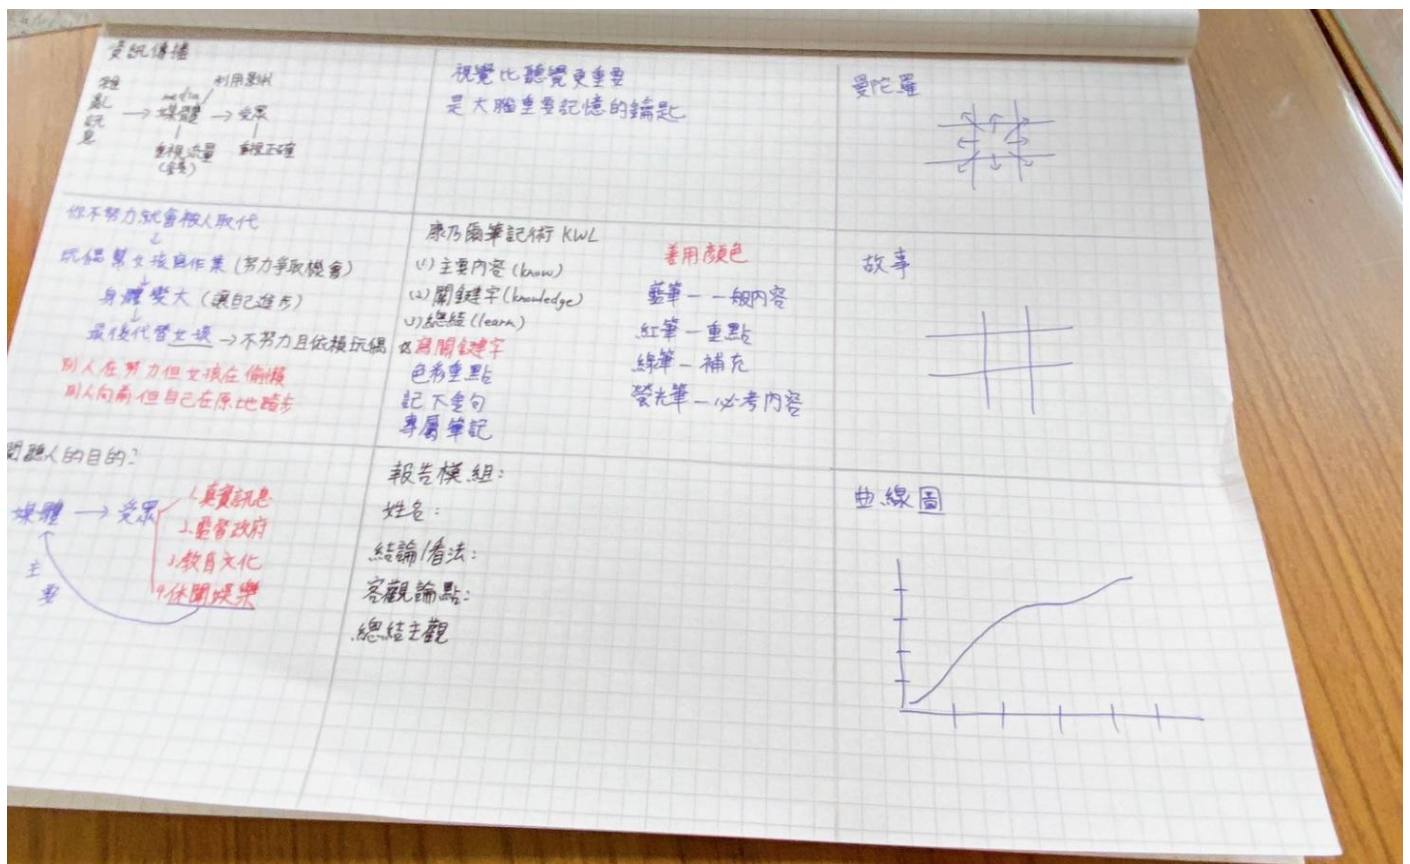 資訊傳播
雜亂訊息 → 媒體 → 受眾
media
利用影响
重視流量
(金錢)
重視正確
視覺比聽覺更重要
是大腦重要記憶的鑰匙
曼陀羅
你不努力就會被人取代
↓
玩偶幫女孩寫作業 (努力爭取機會)
↓
身體變大 (讓自己進步)
↓
最後代替女孩 → 不努力且依賴玩偶
別人在努力但女孩在偷懶
別人向前但自己在原地踏步
康乃爾筆記術 KWL
(1) 主要內容 (know)
(2) 關鍵字 (knowledge)
(3) 總結 (learn)
寫關鍵字
色彩重點
記下金句
專屬筆記
善用顏色
藍筆 — 一般內容
紅筆 — 重點
綠筆 — 補充
螢光筆 — 必考內容
故事
閱聽人的目的?
媒體 → 受眾
1.真實訊息
2.監督政府
3.教育文化
4.休閒娛樂
主要
報告模組:
姓名:
結論/看法:
客觀論點:
總結主觀
曲線圖